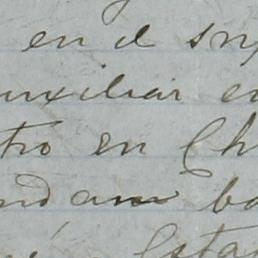 en el
uxiliar e
tro en Ch
ndam ba
Esta